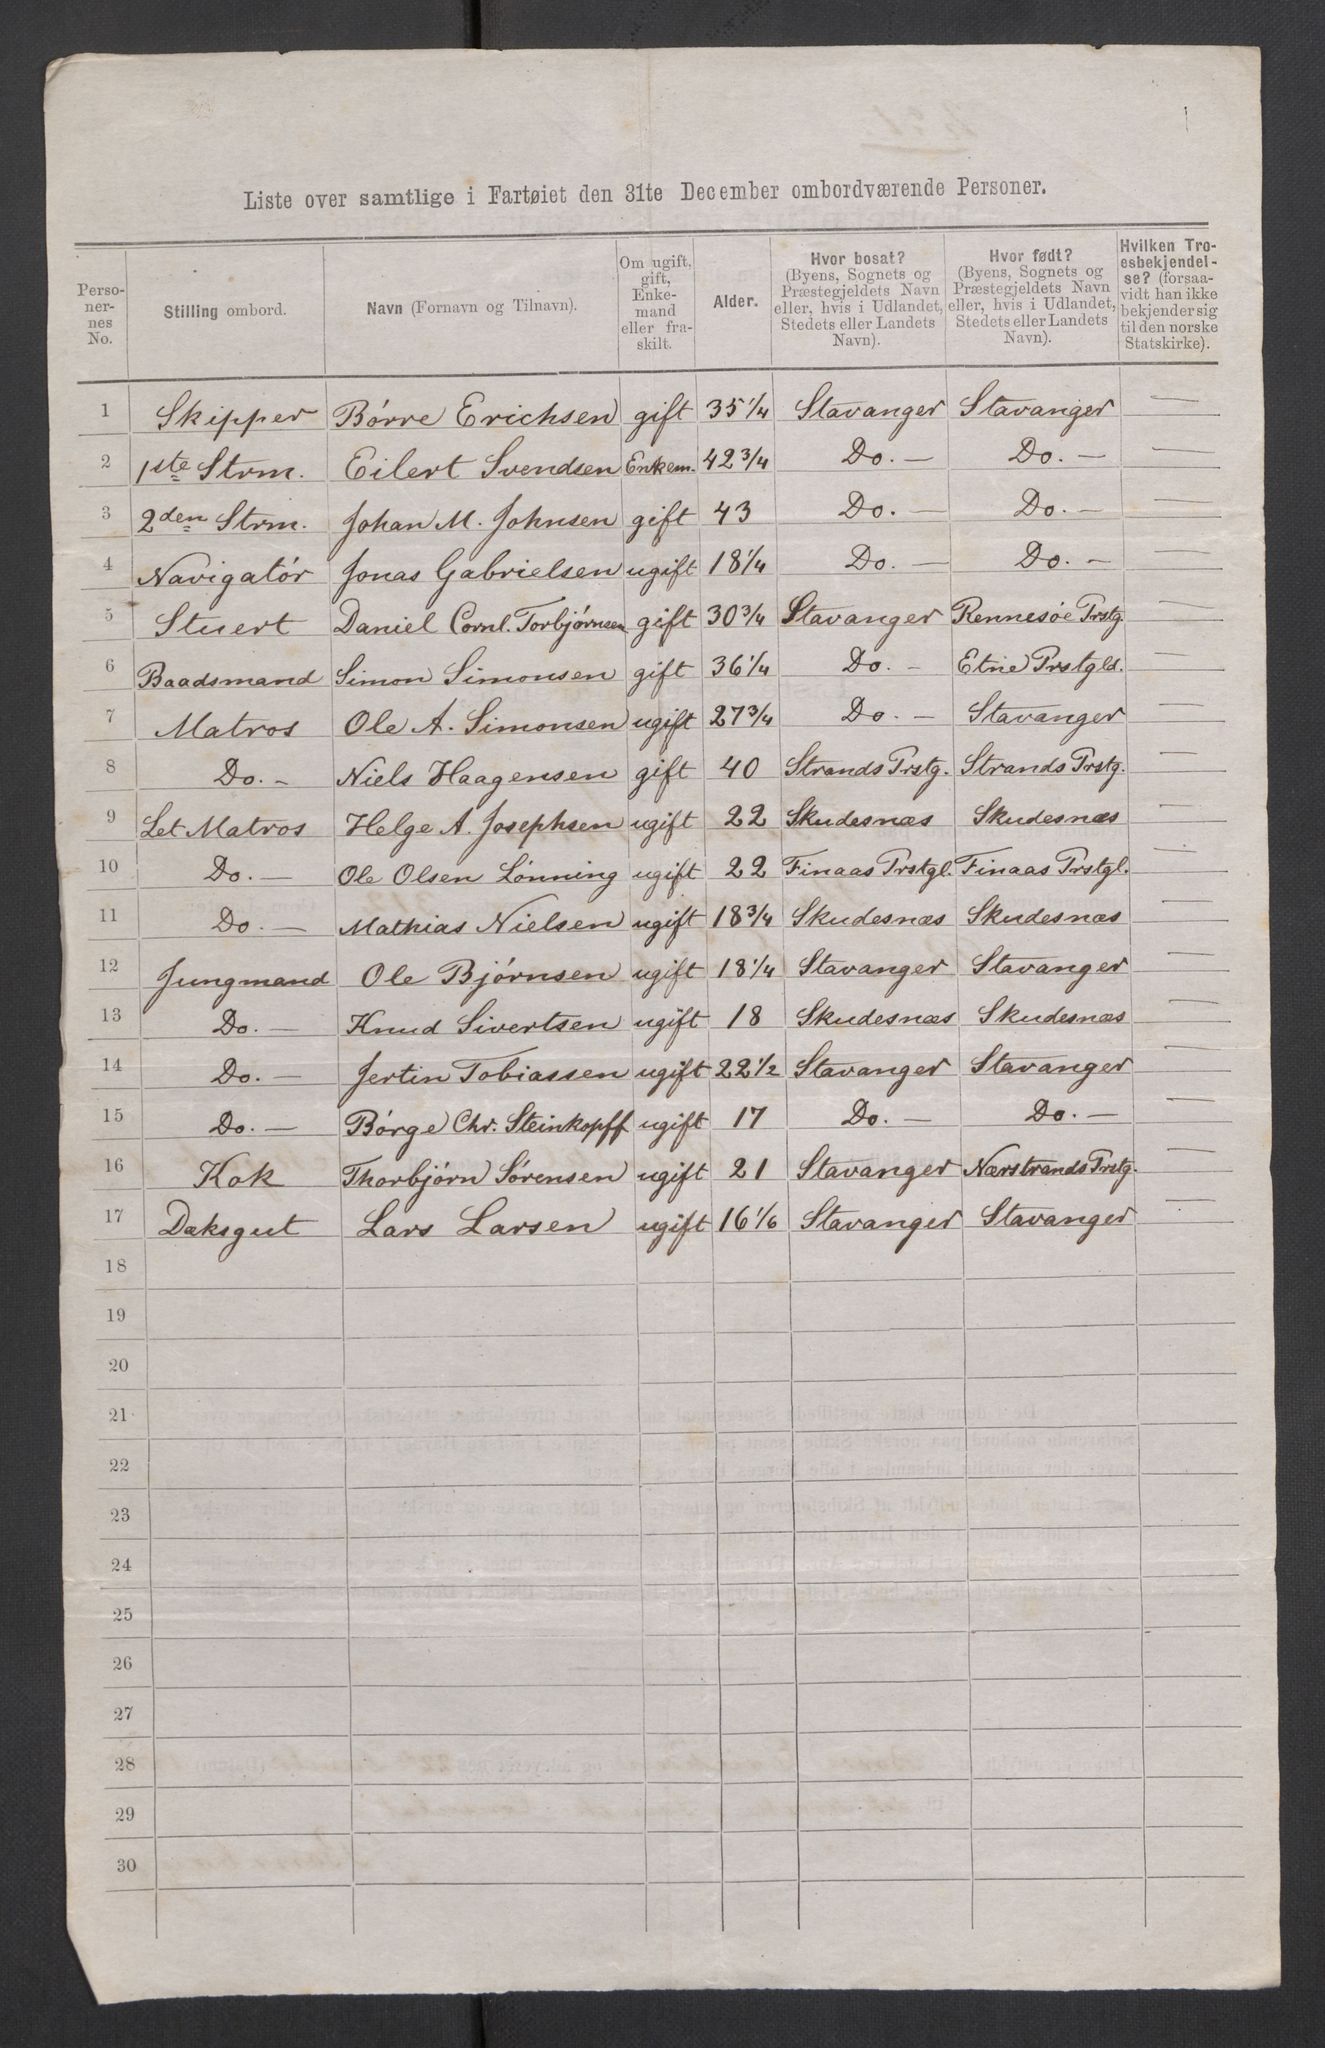 Liste over samtlige i Fartøiet den 31te December ombordværende Personer.
Perso-
ner-
nes
No.
Stilling ombord.
Navn (Fornavn og Tilnavn).
Om ugift,
gift,
Enke-
mand
eller fra-
skilt.
Alder.
Hvor bosat?
(Byens, Sognets og
Præstegjeldets Navn
eller, hvis i Udlandet,
Stedets eller Landets
Navn).
Hvor født?
(Byens, Sognets og
Præstegjeldets Navn
eller, hvis i Udlandet,
Stedets eller Landets
Navn).
Hvilken Tro-
esbekjendel-
se? (forsaa-
vidt han ikke
bekjender sig
til den norske
Statskirke).
1 Skipper Børre Erichsen gift 35 1/4 Stavanger Stavanger —
2 1ste Strm. Eilert Svendsen Enkem. 42 3/4 Do. — Do. — —
3 2den Strm. Johan M. Johnsen gift 43 Do. — Do. — —
4 Navigatør Jonas Gabrielsen ugift 18 1/4 Do. — Do. — —
5 Stuert Daniel Cornl. Torbjørnsen gift 30 3/4 Stavanger Rennesøe Prstg. —
6 Baadsmand Simon Simonsen gift 36 1/4 Do. — Etne Prstgld. —
7 Matros Ole A. Simonsen ugift 27 3/4 Do. — Stavanger —
8 Do. — Niels Haagensen gift 40 Strands Prstg. Strands Prstg. —
9 Let Matros Helge A. Josephsen ugift 22 Skudesnæs Skudesnæs —
10 Do. — Ole Olsen Lønning ugift 22 Finaas Prstgl. Finaas Prstgl. —
11 Do. — Mathias Nielsen ugift 18 3/4 Skudesnæs Skudesnæs —
12 Jungmand Ole Bjørnsen ugift 18 1/4 Stavanger Stavanger —
13 Do. — Knud Sivertsen ugift 18 Skudesnæs Skudesnæs —
14 Do. — Jertin Tobiassen ugift 22 1/2 Stavanger Stavanger —
15 Do. — Børge Chr. Steinkopff ugift 17 Do. — Do. — —
16 Kok Thorbjørn Sørensen ugift 21 Stavanger Nærstrands Prstg. —
17 Dæksgut Lars Larsen ugift 16 1/6 Stavanger Stavanger —
18
19
20
21
22
23
24
25
26
27
28
29
30